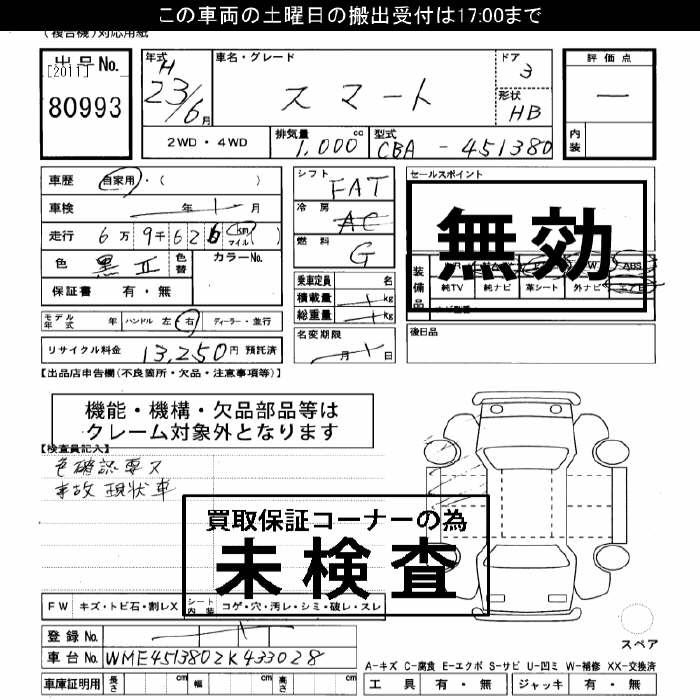 この車両の土曜日の搬出受付は17:00まで
(複合機)対応用紙
出品No.
[2011]
80993
年式
H
23/6月
車名・グレード
スマート
ドア
3
形状
HB
評価点
—
内装
2WD・4WD
排気量
1,000cc
型式
CBA - 451380
車歴 自家用・( )
車検 年 月
走行 6万9千626 km マイル ( )
色 黒II 色替 カラーNo.
保証書 有・無
モデル年式 年 ハンドル 左 右 ディーラー・並行
リサイクル料金 13,250円 預託済
シフト FAT
冷房 AC
燃料 G
乗車定員 名
積載量 kg
総重量 kg
名変期限
月 日
セールスポイント
無効
装備品
ABS
純TV 純ナビ 革シート 外ナビ
後日品
【出品店申告欄(不良箇所・欠品・注意事項等)】
機能・機構・欠品部品等は
クレーム対象外となります
【検査員記入】
色確認要ス
事故現状車
買取保証コーナーの為
未検査
FW キズ・トビ石・割レX シート内装 コゲ・穴・汚レ・シミ・破レ・スレ
登録No.
車台No. WME4513802K433028
車庫証明用 長さ cm 幅 cm 高さ cm
スペア
A-キズ C-腐食 E-エクボ S-サビ U-凹ミ W-補修 XX-交換済
工具 有・無 ジャッキ 有・無